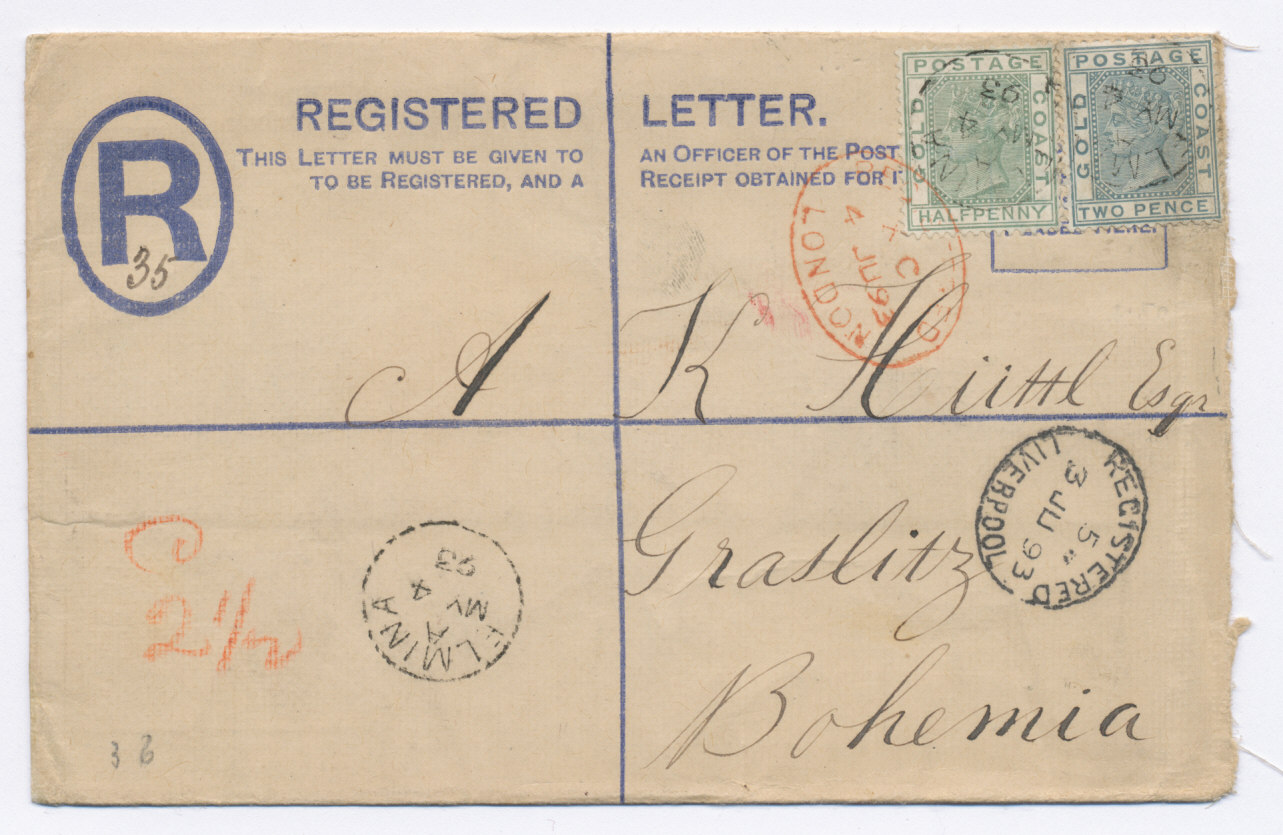 REGISTERED LETTER.
THIS LETTER MUST BE GIVEN TO AN OFFICER OF THE POST
TO BE REGISTERED, AND A RECEIPT OBTAINED FOR IT
R
35
POSTAGE
GOLD COAST
HALFPENNY
POSTAGE
GOLD COAST
TWO PENCE
REGISTERED
LONDON
4 JU 93
C
A K Hüttl Esqr
Graslitz
Bohemia
REGISTERED
LIVERPOOL
5
3 JU 93
ELMINA
A
MY 4
93
2 1/2
3 6